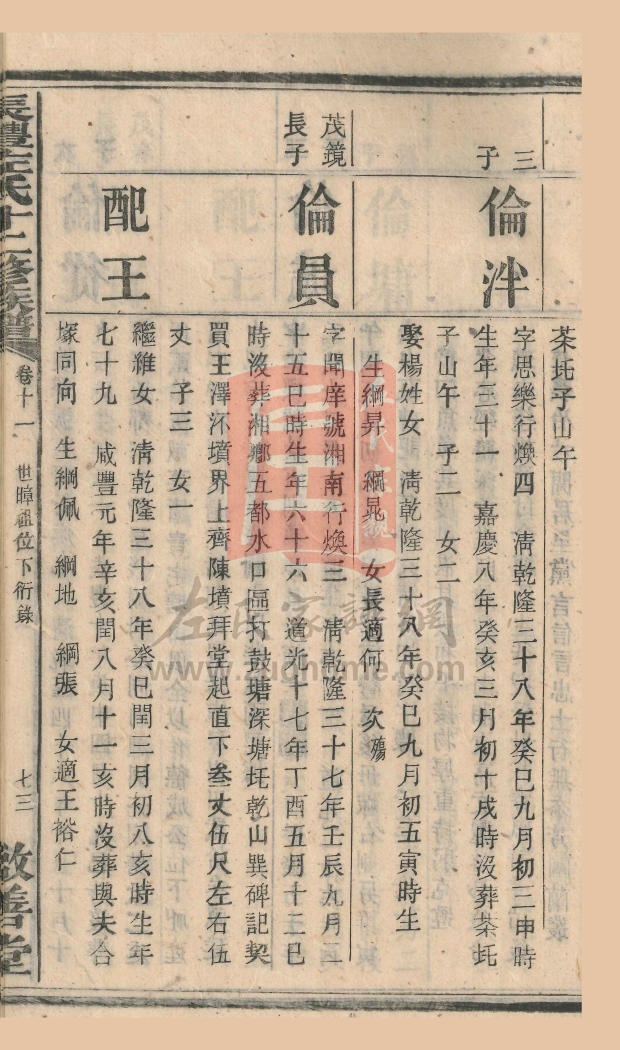 茶圫子山午
三子
倫泮
字思樂行煥四　清乾隆三十八年癸巳九月初三申時
生年三十一　嘉慶八年癸亥三月初十戌時沒葬茶圫
子山午　子二　女二
娶楊姓女　清乾隆三十八年癸巳九月初五寅時生
生綱昇　綱晃　女長適何　次殤
茂鏡長子
倫員
字聞庠號湘南行煥三　清乾隆三十七年壬辰九月二
十五巳時生年六十六　道光十七年丁酉五月十三巳
時沒葬湘鄉五都水口區打鼓塘深塘圫乾山巽碑記契
買王澤沶墳界上齊陳墳拜堂起直下叁丈伍尺左右伍
丈　子三　女一
配王
繼維女　清乾隆三十八年癸巳閏三月初八亥時生年
七十九　咸豐元年辛亥閏八月十一亥時沒葬與夫合
塚同向　生綱佩　綱地　綱張　女適王裕仁
長澧左氏十二修族譜
卷十一　世暐祖位下衍錄
七三
敦善堂
左氏家譜網
www.zuqnhome.com